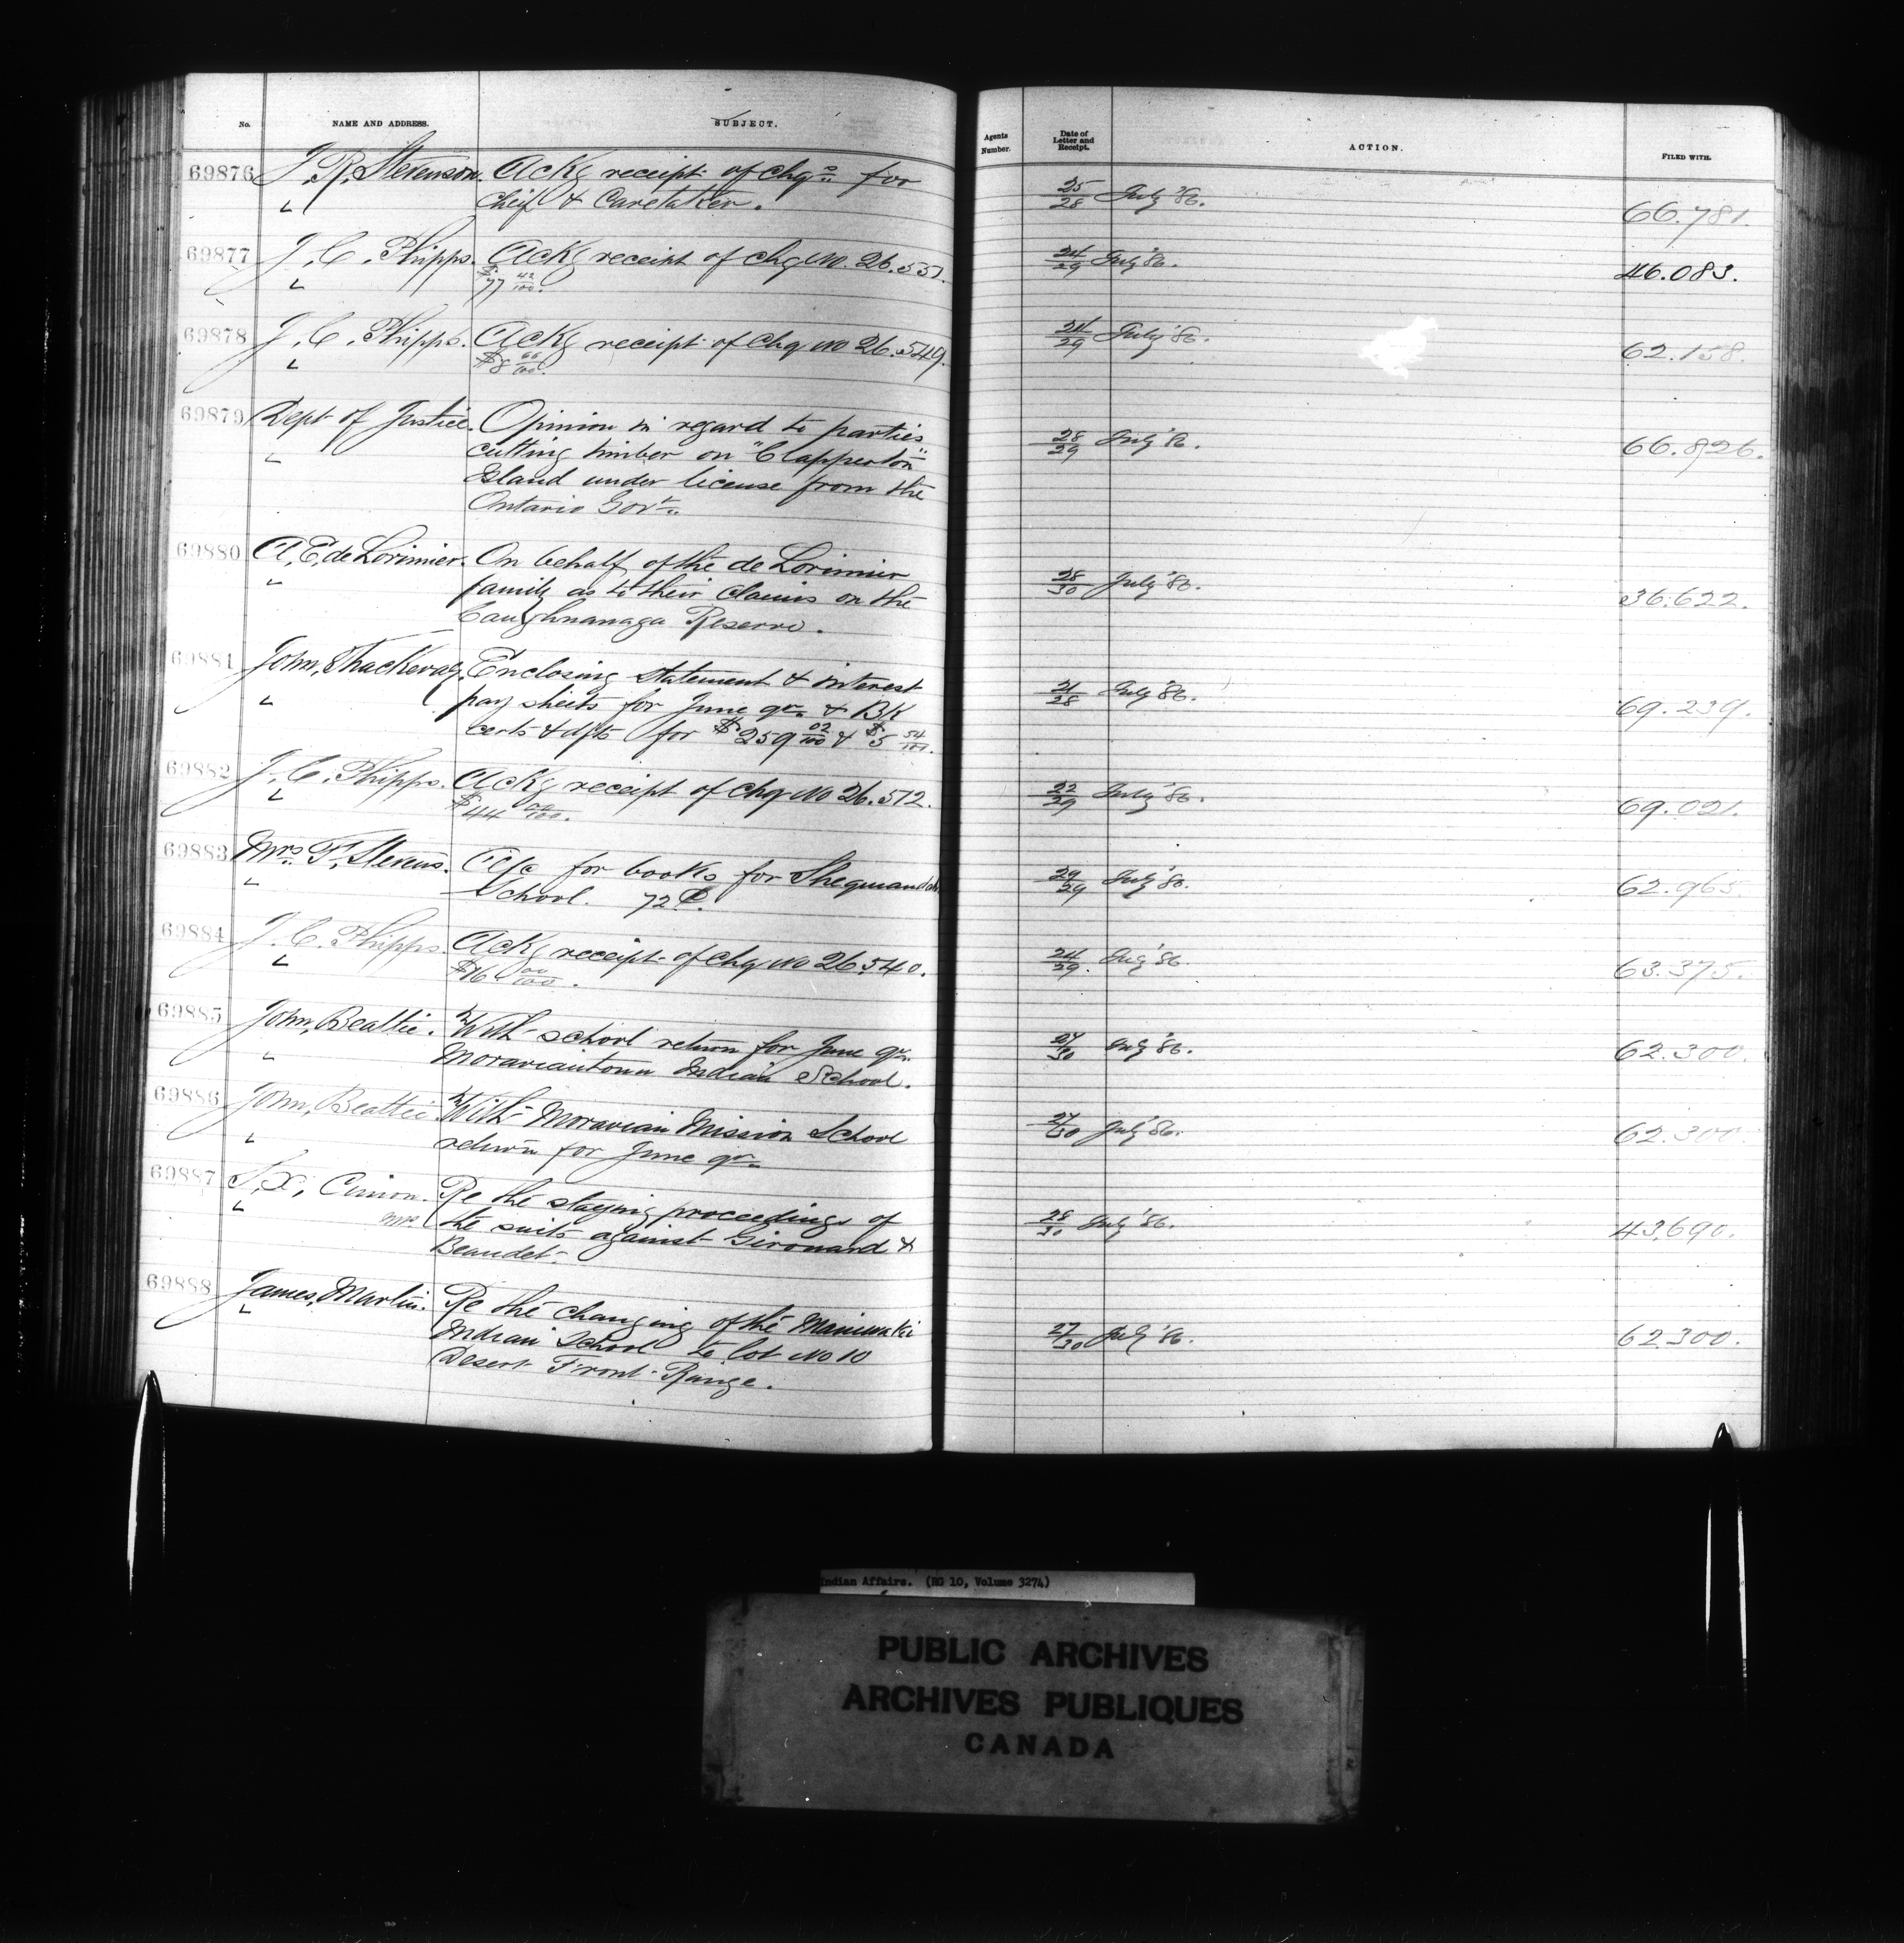 No. NAME AND ADDRESS. SUBJECT. Agents Number. Date of Letter and Receipt. ACTION. FILED WITH.
69876 J. R. Stevenson. Ackg receipt of chqs for 25/28 July '86. 66.781.
" chief & Caretaker.
69877 J. C. Phipps. Ackg receipt of chq no. 26.537. 24/29 July '86. 46.083.
" $77 42/100.
69878 J. C. Phipps. Ackg receipt of chq no 26.549. 24/29 July '86. 62.158.
" $8 66/100.
69879 Dept of Justice. Opinion in regard to parties 28/29 July '86. 66.826.
" cutting timber on "Clapperton"
Island under license from the
Ontario Govt.
69880 A. E. de Lorimier. On behalf of the de Lorimier 28/30 July '86. 36.622.
" family as to their claims on the
Caughnanaga Reserve.
69881 John, Thackeray. Enclosing statement & interest 21/28 July '86. 69.239.
" pay sheets for June qr. & BK
certs & dfts for $259 02/100 & $5 54/100.
69882 J. C. Phipps. Ackg receipt of chq no 26.512. 22/29 July '86. 69.021.
" $44 00/100.
69883 Mrs F. Stevens. A/c for books for Sheguiandah 29/29 July '86. 62.965.
" School. 72 ¢.
69884 J. C. Phipps. Ackg receipt of chq no 26.540. 24/29. July '86. 63.375.
" $16 00/100.
69885 John, Beattie. With school return for June qr. 27/30 July '86. 62.300.
" Moraviantown Indian School.
69886 John, Beattie With Moravian Mission School 27/30 July '86. 62.300.
" return for June qr.
69887 Cimon. Re the staying proceedings of 28/30 July '86. 43,690.
" the suits against Girouard &
Beaudet.
69888 James, Martin. Re the changing of the Maniwaki 27/30 July '86. 62300.
" Indian School to lot no 10
Desert Front Range.
Indian Affairs. (RG 10, Volume 3274)
PUBLIC ARCHIVES
ARCHIVES PUBLIQUES
CANADA